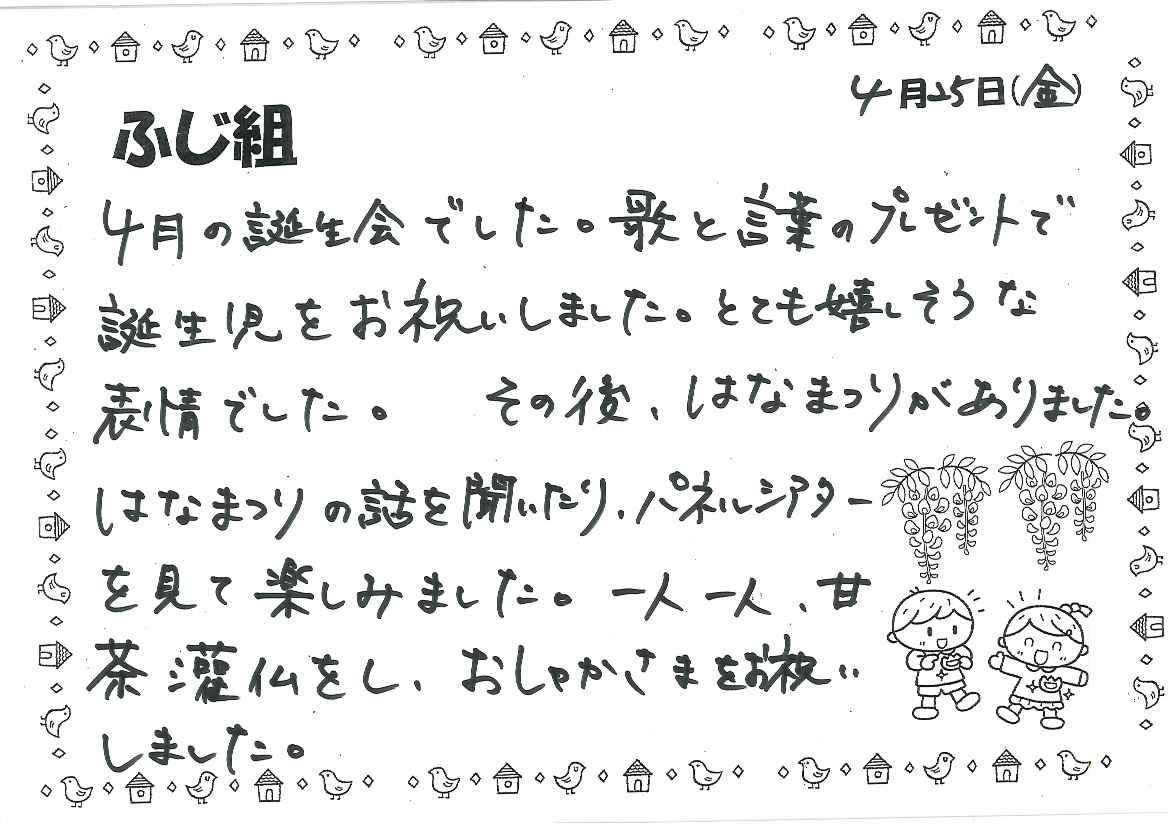 4月25日(金)
ふじ組
4月の誕生会でした。歌と言葉のプレゼントで
誕生児をお祝いしました。とても嬉しそうな
表情でした。 その後、はなまつりがありました。
はなまつりの話を聞いたり、パネルシアター
を見て楽しみました。一人一人、甘
茶灌仏をし、おしゃかさまをお祝い
しました。